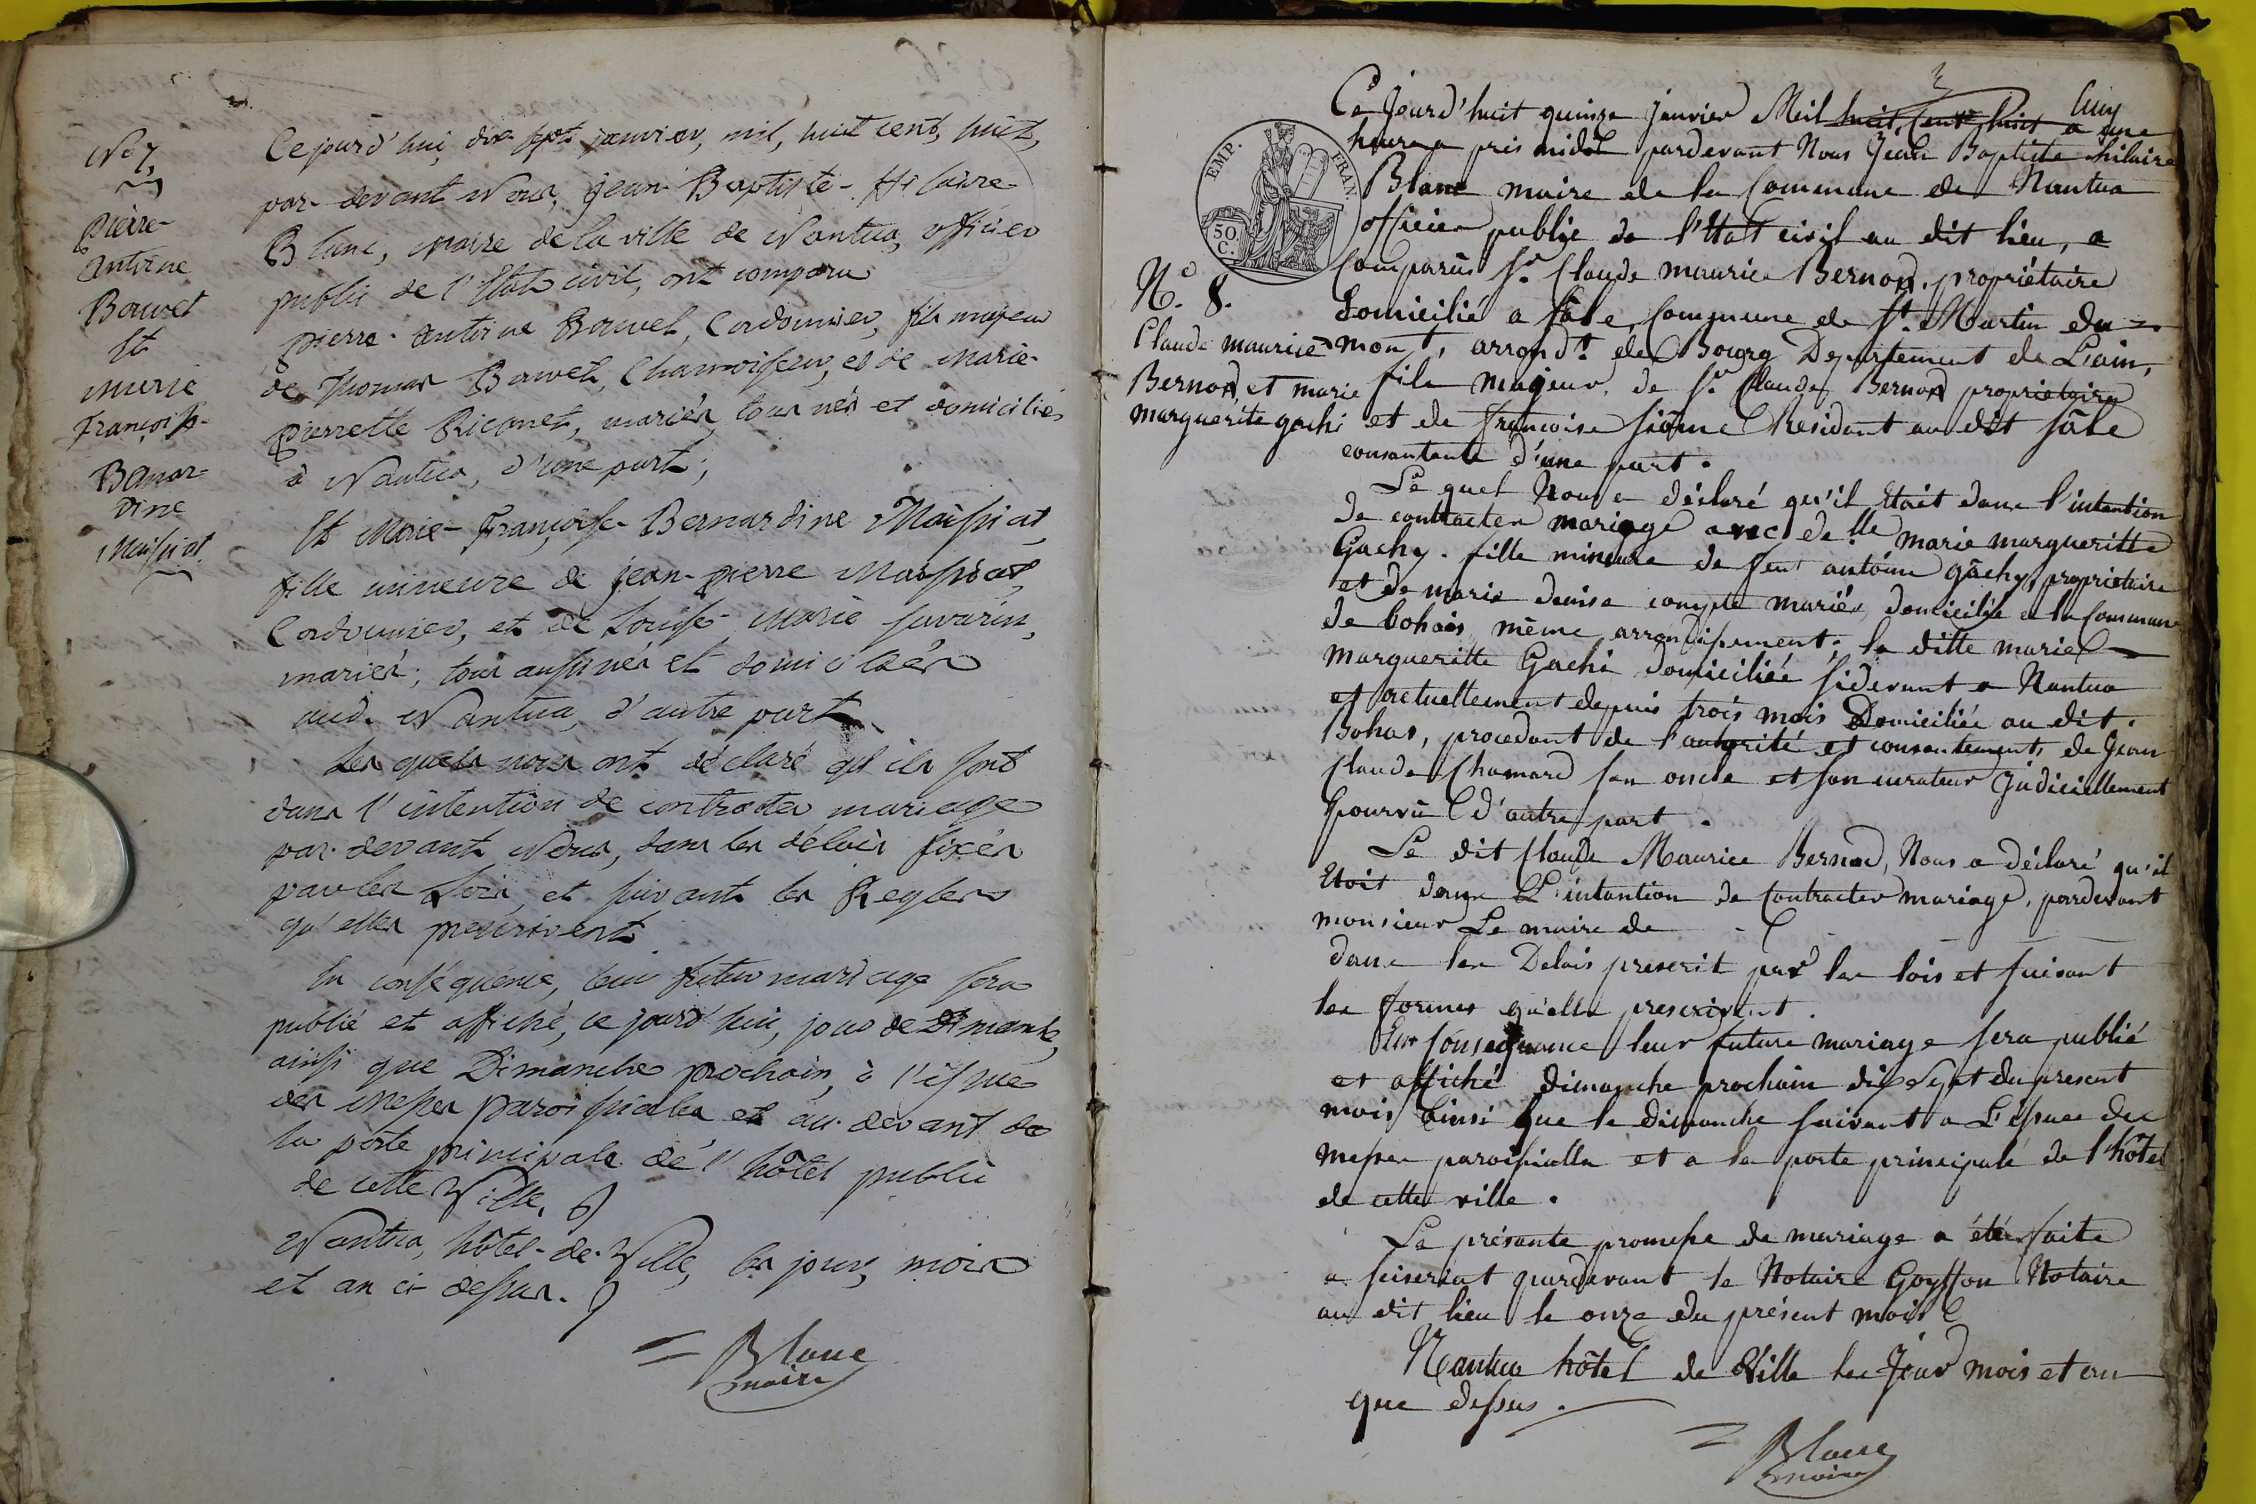 No 7.
Pierre-
Antoine
Bouvet
Et
Marie
Françoise-
Bernar-
dine
Maissiat.
Ce jourd'hui, dix sept janvier, mil, huit cent, huit,
par-devant Nous, Jean-Baptiste-Hilaire
Blanc, Maire de la ville de Nantua, officier
public de l'Etat civil, ont comparu
Pierre-Antoine Bouvet, Cordonnier, fils majeur
de Thomas Bouvet, Chamoiseur, et de Marie-
Pierrette Ricanet, mariés, tous nés et domiciliés
à Nantua, d'une part;
Et Marie-Françoise-Bernardine Maissiat,
fille mineure de Jean-Pierre Maissiat,
Cordonnier, et de Louise Marie Savarin,
mariés; tous aussi nés et domiciliés
aud. Nantua, d'autre part.
Les quels nous ont déclaré qu'ils sont
dans l'intention de contracter mariage
par-devant Nous, dans les délais fixés
par les Loix, et suivant les Regles
qu'elles prescrivent.
En conséquence, leur futur mariage sera
publié et affiché, ce jourd'hui, jour de Dimanche,
ainsi que Dimanche prochain, à l'issue
des Messes paroissiales et au-devant de
la porte principale de l'hôtel public
de cette Ville.
Nantua, hôtel-de-Ville, les jour, mois
et an ci-dessus.
Blanc
maire
EMP. FRAN.
50 C.
No. 8.
Claude maurice
Bernod, et marie
marguerite gachi
Ce Jourd'huit quinze Janvier Mil huit Cent huit a une
heure a pris midi pardevant Nous Jean Baptiste hilaire
Blanc maire de la Commune de Nantua
officier public de l'Etat civil au dit lieu, a
Comparüs Sr. Claude maurice Bernod, propriétaire
Domicilié a Sâle, Commune de St. Martin du
mont, arrondt. de Bourg Département de L'ain,
fils Majeur, de Sr. Claude Bernod propriétaire
et de françoise Résidant au dit Sâle
consentante d'une part.
Le quel Nous a déclaré qu'il Etait dans l'intention
de contracter mariage avec de lle marie margueritte
Gachy. fille mineure de feut antoine gâchy, propriétaire
et de marie denise compte mariés, domiciliée a la Commune
de bohas, même arrondissement; la ditte marie
Margueritte Gachi domiciliée sidevant a Nantua
et actuellement depuis trois mois Domiciliée au dit.
Bohas, procedant de l'autorité et consentements de Jean
Claude Chamard son oncle et son curateur Judiciellement
pourvû d'autre part.
Le dit Claude Maurice Bernod, Nous a déclaré qu'il
Etoit dans L'intantion de Contracter mariage, pardevant
monsieur Le maire de
dans les Delais prescrit par les lois et suivant
les formes qu'elle prescrivent.
En Consequance leur future mariage sera publié
et affiché dimanche prochain dix Sept du présent
mois ainsi que le dimanche suivant a L'issue des
messes paroissialles et a la porte principale de l'hôtel
de cette ville.
La présante promesse de mariage a été faite
a seiseriat pardevant le Notaire Goyffon Notaire
au dit lieu le onze du présent mois
Nantua hôtel de Ville les Jour mois et an
que dessus.
Blanc
maire